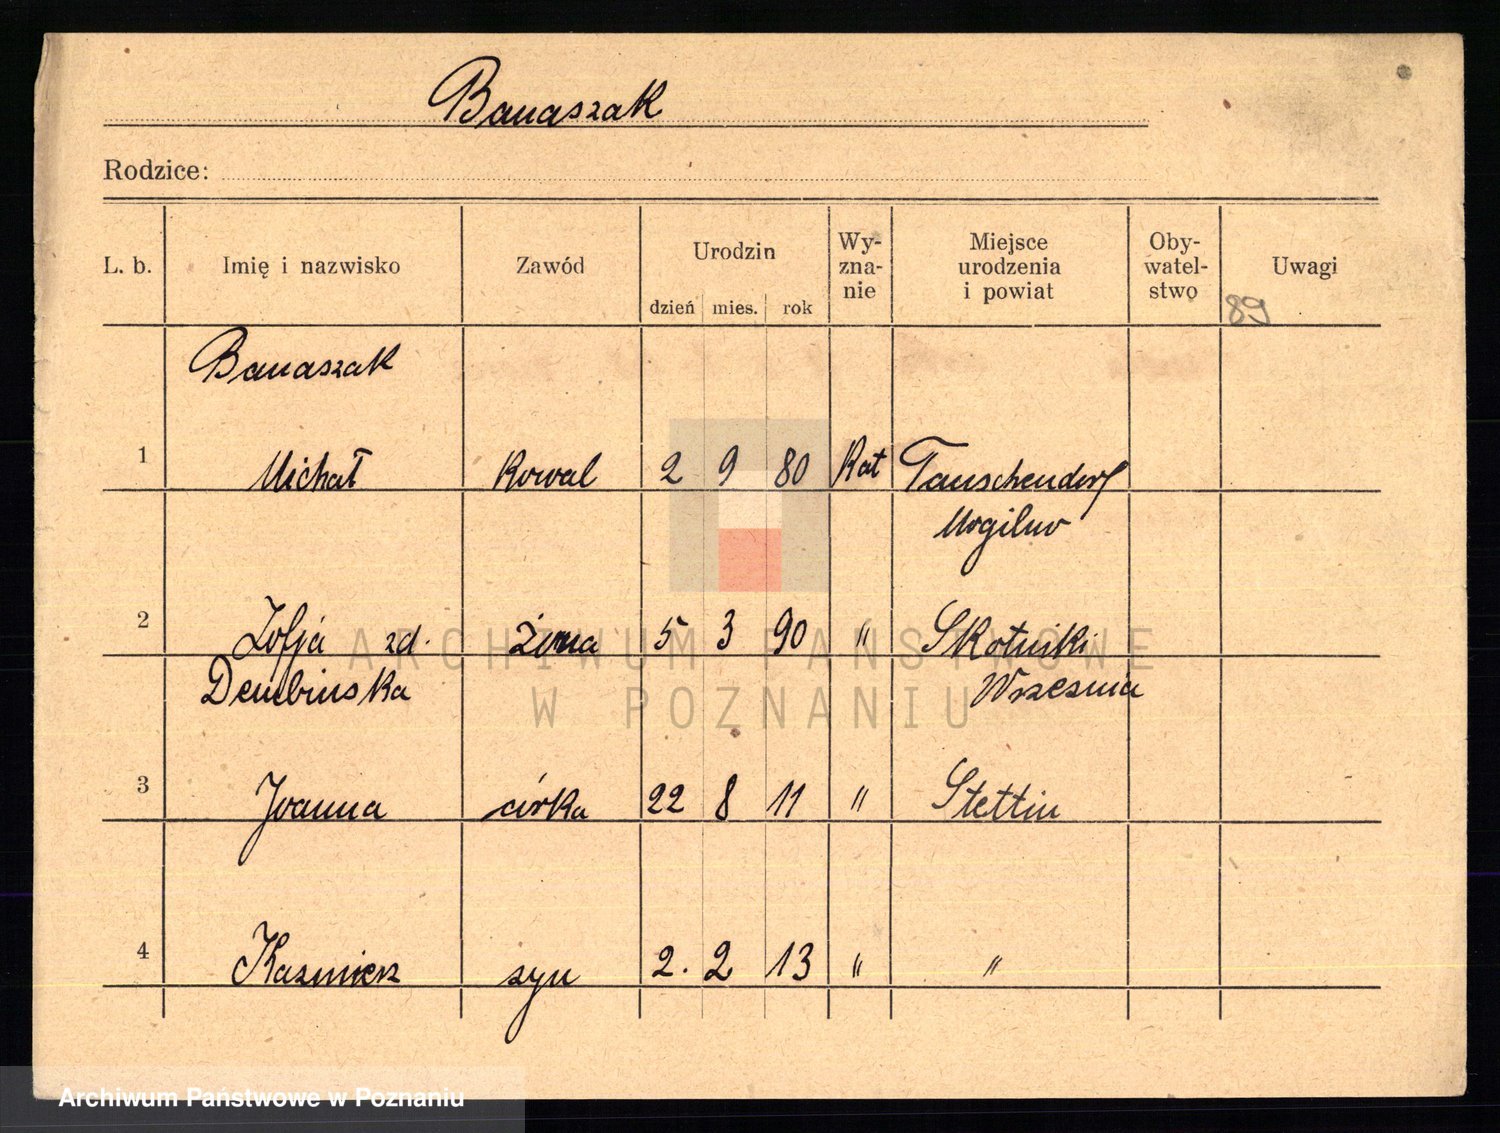 Banaszak
Rodzice:
L. b. Imię i nazwisko Zawód Urodzin dzień mies. rok Wy-zna-nie Miejsce urodzenia i powiat Oby-watel-stwo Uwagi
89
Banaszak
1 Michał Kowal 2 9 80 Kat Tauschendorf
Mogilno
2 Zofja zd. żona 5 3 90 " Skotniki
Dembinska Wrzesnia
3 Joanna córka 22 8 11 " Stettin
4 Kazmierz syn 2. 2 13 " "
ARCHIWUM PAŃSTWOWE
W POZNANIU
Archiwum Państwowe w Poznaniu